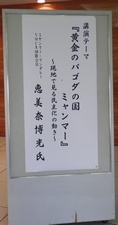 講演テーマ
『黄金のパゴダの国
ミャンマー』
～現地で見る民主化の動き～
恵美奈博光氏